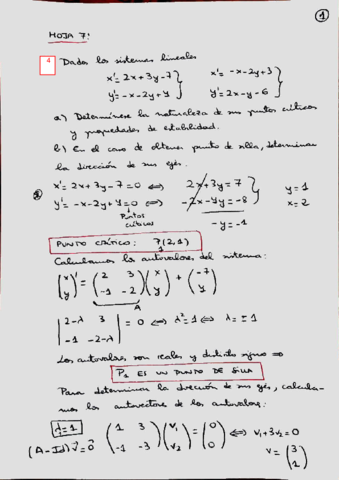 1
HOJA 7:
4 Dados los sistemas lineales
x'=2x+3y-7 } x'=-x-2y+3 }
y'=-x-2y+4 } y'=2x-y-6 }
a) Determínese la naturaleza de sus puntos críticos
y propiedades de estabilidad.
b) En el caso de obtener punto de silla, determinar
la dirección de sus ejes.
x'=2x+3y-7=0 ⇔ 2x+3y=7 } y=1
y'=-x-2y+4=0 ⇔ -2x-4y=-8 } x=2
Puntos críticos
-y=-1
PUNTO CRÍTICO: P1(2,1)
Calculamos los autovalores del sistema:
(x y)' = (2 3 -1 -2)(x y) + (-7 4)
A
|2-λ 3 -1 -2-λ| = 0 ⇔ λ²=1 ⇔ λ=±1
Los autovalores son reales y distinto signo ⇒
P1 ES UN PUNTO DE SILLA
Para determinar la dirección de sus ejes, calcula-
mos los autovectores de los autovalores:
λ=1 (1 3 -1 -3)(v1 v2)=(0 0) ⇔ v1+3v2=0
(A-Id)v=0 v=(3 1)